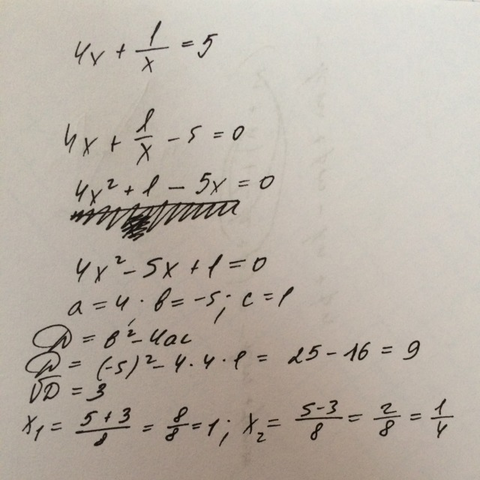 4x + 1/x = 5
4x + 1/x - 5 = 0
4x² + 1 - 5x = 0
4x² - 5x + 1 = 0
a = 4 · в = -5; c = 1
D = в² - 4ac
D = (-5)² - 4 · 4 · 1 = 25 - 16 = 9
√D = 3
x₁ = (5+3)/8 = 8/8 = 1; x₂ = (5-3)/8 = 2/8 = 1/4